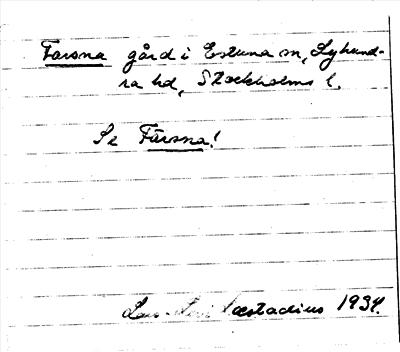 Farsna gård i Estuna sn, Lyhund-
ra hd, Stockholms l.
Se Färsna!
Lars Levi Læstadius 1934.